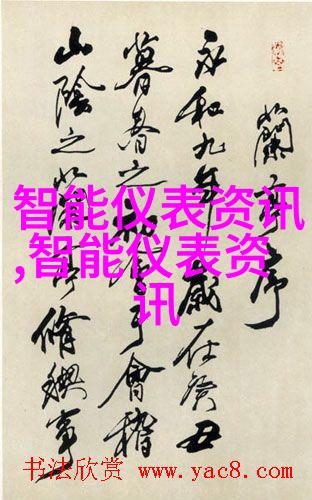 蘭亭序
永和九年歲在癸丑
暮春之初會于會稽
山陰之蘭亭脩禊事
智能仪表资讯
,智能仪表资
讯
书法欣赏 www.yac8.com